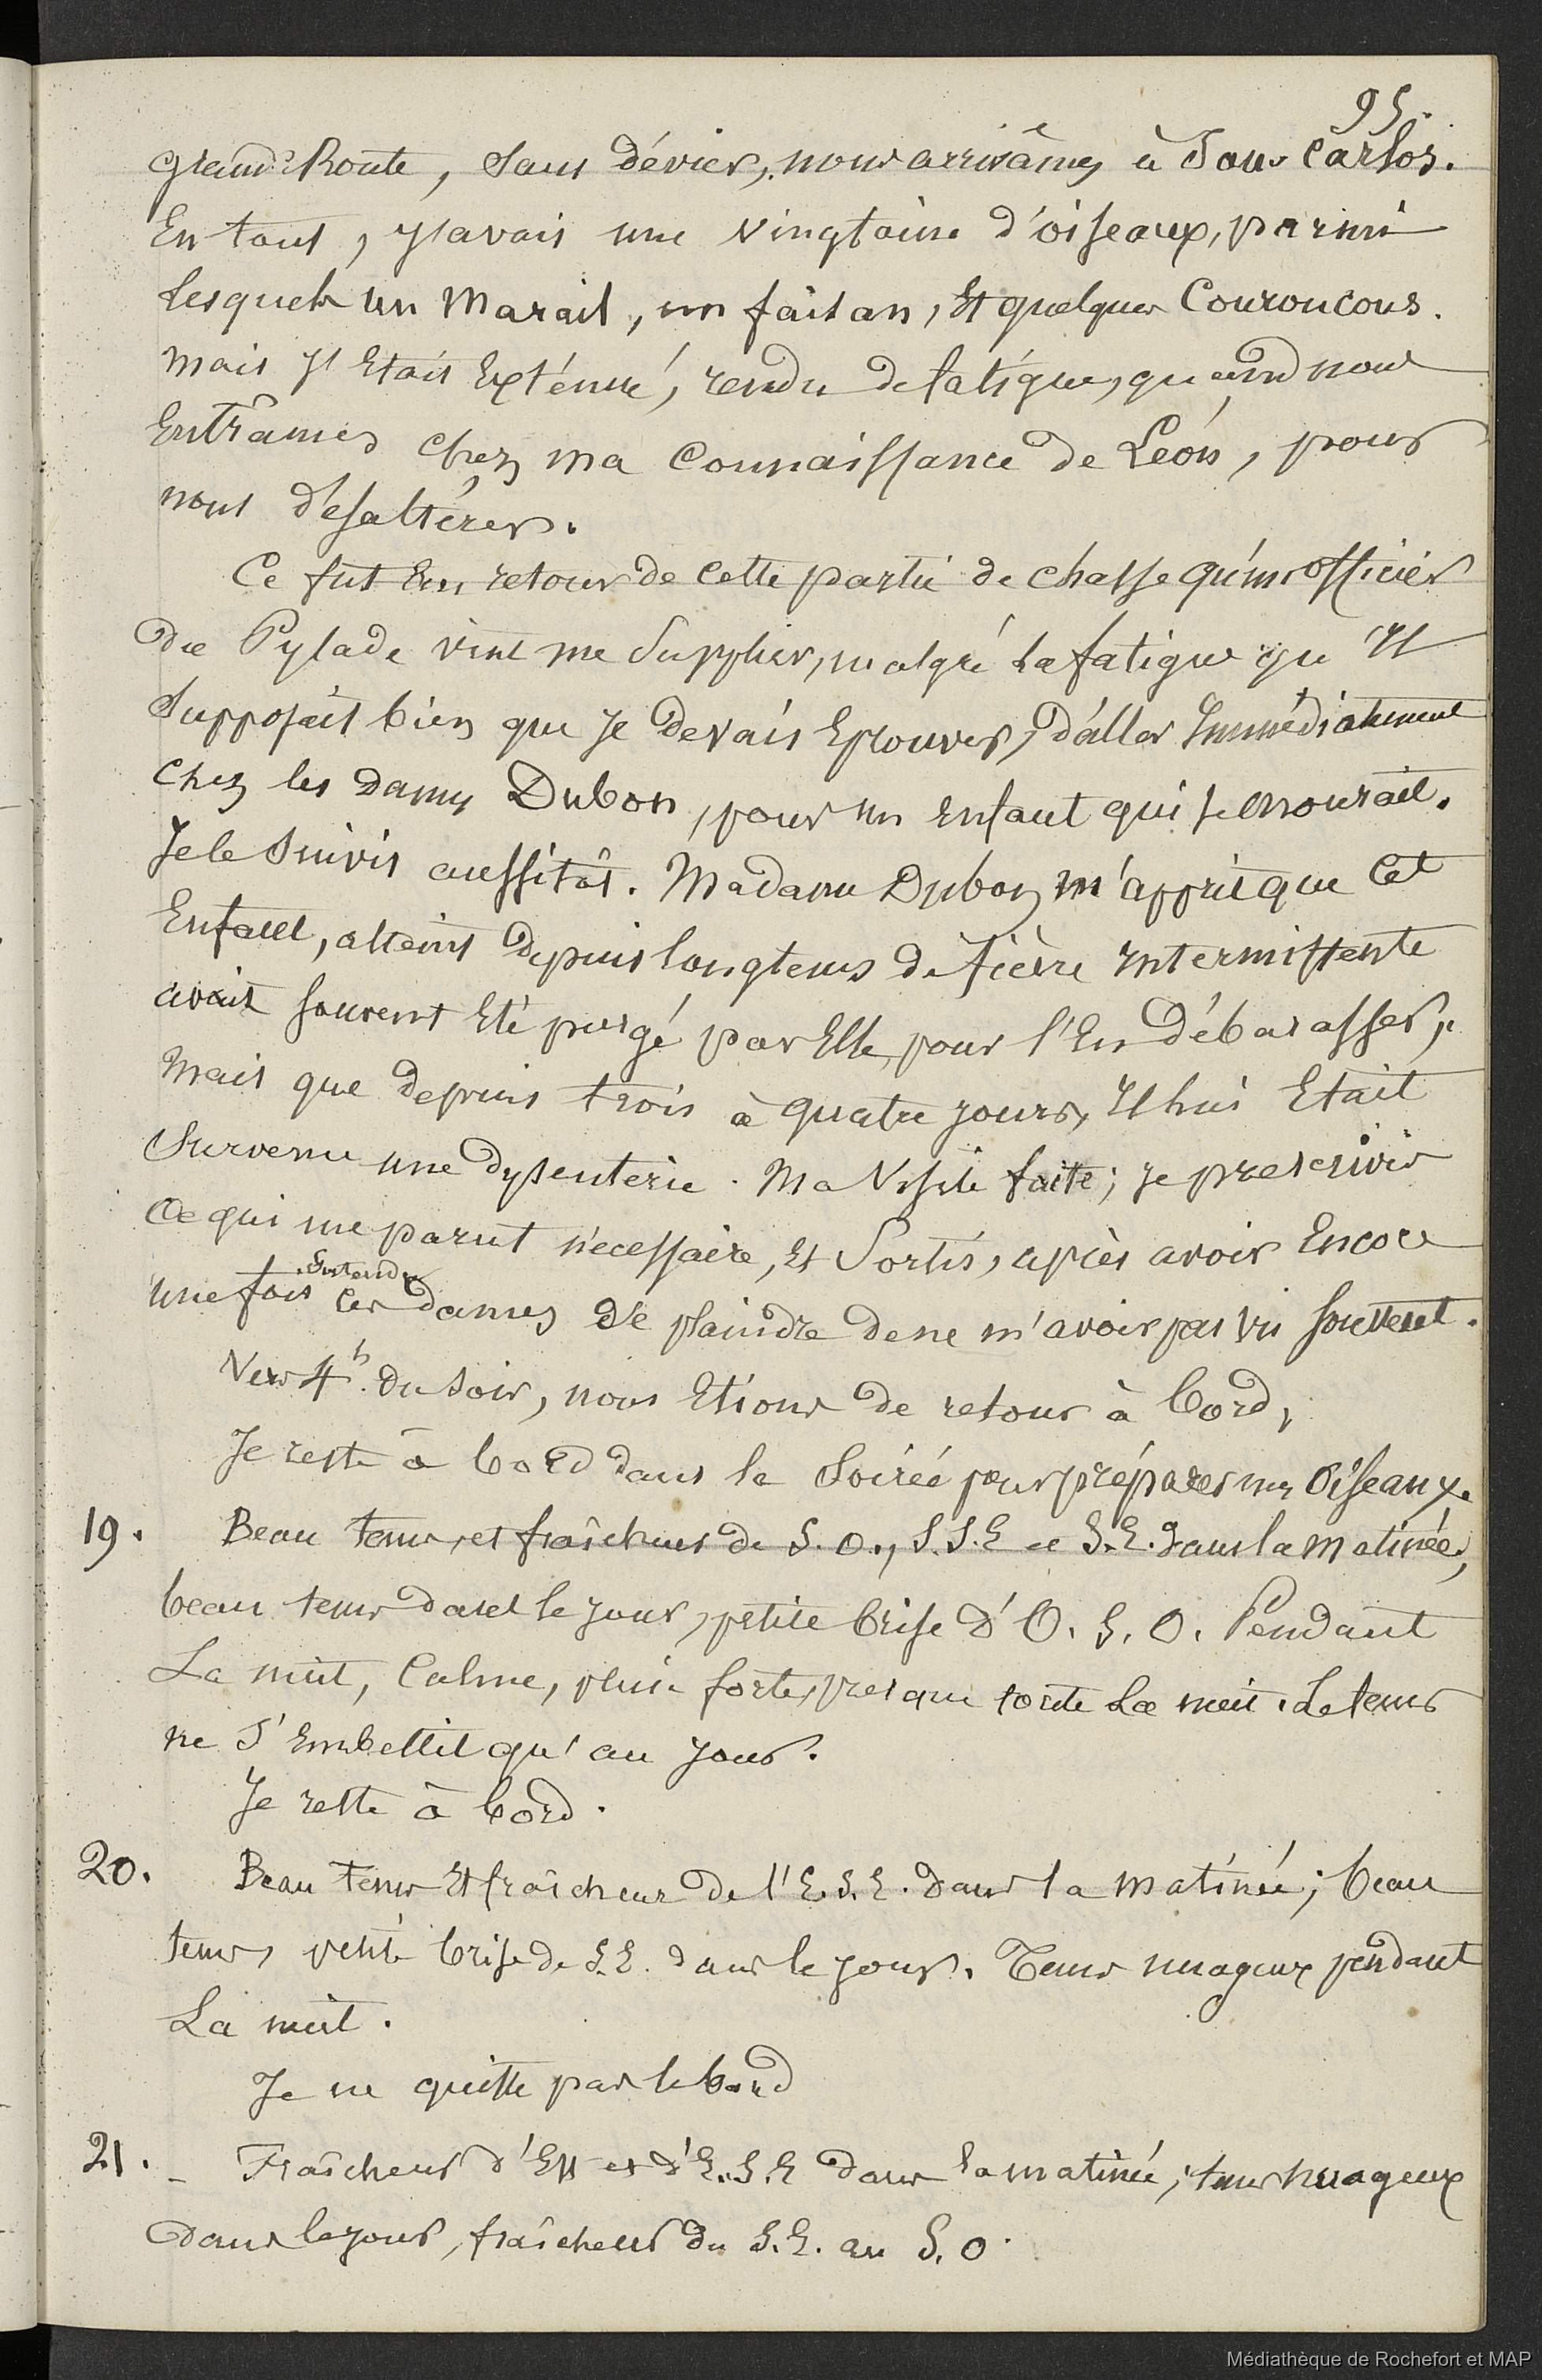 95.
grand'Route, sans dévier, nous arrivâmes à San Carlos.
En tout, j'avais une vingtaine d'oiseaux, parmi
lesquels un Marail, un faisan, Et quelques Couroucous.
Mais j'Etais Exténué, rendu de fatigue, quand nous
Entrâmes chez ma connaissance de Léon, pour
nous désaltérer.
Ce fut En retour de cette partie de chasse qu'un officier
du Pylade vint me Supplier, malgré la fatigue qu'Il
Supposait bien que Je devais Eprouver, d'aller Immédiatement
chez les dames Dubon, pour un Enfant qui se mourait.
Je le suivis aussitôt. Madame Dubon m'apprit que cet
Enfant, atteint depuis longtems de fièvre Intermittente
avait souvent Eté purgé par Elle, pour l'En débarasser,
Mais que depuis trois à quatre jours, Il lui Etait
Survenu une dysenterie. Ma Visite faite; je prescrivis
Ce qui me parut nécessaire, Et Sortis, après avoir Encore
Entendu
une fois ces dames se plaindre de ne m'avoir pas vu souvent.
Vers 4h. du soir, nous Etions de retour à bord,
Je reste à bord dans la Soirée pour préparer mes Oiseaux.
19. Beau tems, et fraîcheur de S. O., S.S.E et S.E. dans la matinée,
beau tems dans le jour, petite brise d'O. S. O. Pendant
La nuit, Calme, pluie forte, presque toute La nuit. Le tems
ne S'Embellit qu'au jour.
Je reste à bord.
20. Beau tems Et fraîcheur de l'E.S.E. dans la matinée; beau
tems, petite brise de S.E. dans le jour. Tems nuageux pendant
La nuit.
Je ne quitte pas le bord
21. - Fraîcheur d'Est et d'E.S.E dans la matinée; tems nuageux
dans le jour, fraîcheur du S.E. au S.O.
Médiathèque de Rochefort et MAP